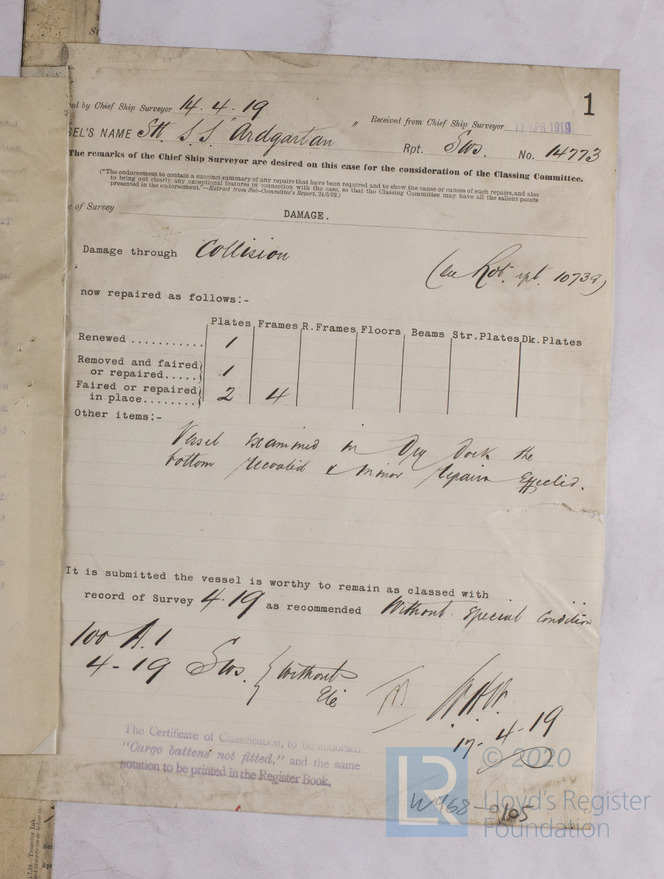 ed by Chief Ship Surveyor 14.4.19
Received from Chief Ship Surveyor 17 APR 1919
1
SEL'S NAME S.S. "Ardgartan" Rpt. Sws. No. 14773
The remarks of the Chief Ship Surveyor are desired on this case for the consideration of the Classing Committee.
("The endorsement to contain a succinct summary of any repairs that have been required and to show the cause or causes of such repairs, and also
to bring out clearly any exceptional features in connection with the case, so that the Classing Committee may have all the salient points
presented in the endorsement."—Extract from Sub-Committee's Report, 24/5/92.)
e of Survey
DAMAGE.
Damage through Collision
(see Rot. rpt. 10739)
now repaired as follows:-
Plates Frames R.Frames Floors Beams Str.Plates Dk.Plates
Renewed ........... 1
Removed and faired
or repaired..... 1
Faired or repaired
in place........ 2 4
Other items:-
Vessel examined in Dry Dock the
bottom recoated & minor repairs effected.
It is submitted the vessel is worthy to remain as classed with
record of Survey 4.19 as recommended without special condition
100 A.1
4-19 Sws. { without
17.4.19
The Certificate of Classification, to be endorsed
"Cargo battens not fitted," and the same
notation to be printed in the Register Book.
W968-0105
LR
© 2020
Lloyd's Register
Foundation